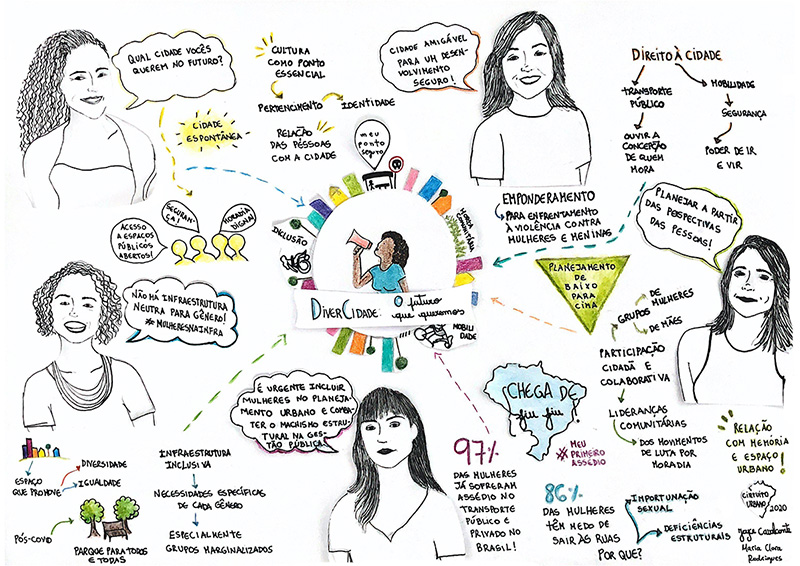 QUAL CIDADE VOCÊS
QUEREM NO FUTURO?
CIDADE
ESPONTÂNEA
CULTURA
COMO PONTO
ESSENCIAL
PERTENCIMENTO
IDENTIDADE
RELAÇÃO
DAS PESSOAS
COM A CIDADE
CIDADE AMIGÁVEL
PARA UM DESEN-
VOLVIMENTO
SEGURO!
DIREITO À CIDADE
TRANSPORTE
PÚBLICO
OUVIR A
CONCEPÇÃO
DE QUEM
MORA
MOBILIDADE
SEGURANÇA
PODER DE IR
E VIR
ACESSO
A ESPAÇOS
PÚBLICOS
ABERTOS!
SEGURAN-
ÇA!
MORADIA
DIGNA!
meu
ponto
seguro
INCLUSÃO
HORTA
COMUNITÁRIA
DIVERCIDADE:
O futuro
que queremos
MOBILI
DADE
EMPONDERAMENTO
PARA ENFRENTAMENTO
À VIOLÊNCIA CONTRA
MULHERES E MENINAS
PLANEJAR A PARTIR
DAS PERSPECTIVAS
DAS PESSOAS!
NÃO HÁ INFRAESTRUTURA
NEUTRA PARA GÊNERO!
#MULHERESNAINFRA
PLANEJAMENTO
DE
BAIXO
PARA
CIMA
GRUPOS
DE
MULHERES
DE
MÃES
PARTICIPAÇÃO
CIDADÃ E
COLABORATIVA
LIDERANÇAS
COMUNITÁRIAS
DOS MOVIMENTOS
DE LUTA POR
MORADIA
RELAÇÃO
COM MEMÓRIA
E ESPAÇO
URBANO!
É URGENTE INCLUIR
MULHERES NO PLANEJA-
MENTO URBANO E COMBA-
TER O MACHISMO ESTRU-
TURAL NA GES-
TÃO PÚBLICA!
CHEGA DE
fiu fiu
#MEU
PRIMEIRO
ASSÉDIO
97%
DAS MULHERES
JÁ SOFRERAM
ASSÉDIO NO
TRANSPORTE
PÚBLICO E
PRIVADO NO
BRASIL!
86%
DAS MULHERES
TÊM MEDO DE
SAIR ÀS RUAS
POR QUE?
IMPORTUNAÇÃO
SEXUAL
DEFICIÊNCIAS
ESTRUTURAIS
ESPAÇO
QUE PROMOVE
DIVERSIDADE
IGUALDADE
PÓS-COVID
PARQUE PARA TODOS
E TODAS
INFRAESTRUTURA
INCLUSIVA
NECESSIDADES ESPECÍFICAS
DE CADA GÊNERO
ESPECIALMENTE
GRUPOS MARGINALIZADOS
CIRCUITO
URBANO
2020
Cavalcante
Maria Clara
Rodrigues